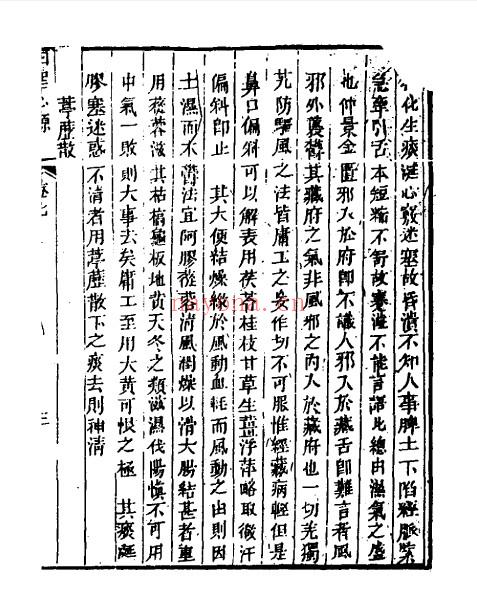 化生痰涎心竅迷塞故昏潰不知人事脾土下陷經脈
急牽引舌本短縮不舒故蹇澁不能言語此總由濕氣之盛
也仲景金匱邪入於府即不識人邪入於藏舌即難言者風
邪外襲鬱其藏府之氣非風邪之內入於藏府也一切羌獨
艽防驅風之法皆庸工之妄作切不可服惟經藏病輕但是
鼻口偏斜可以解表用茯苓桂枝甘草生薑浮萍略取微汗
偏斜即止 其大便結燥緣於風動血耗而風動之由則因
土濕而木鬱法宜阿膠蓯蓉清風潤燥以滑大腸結甚者重
用蓯蓉滋其枯槁龜板地黃天冬之類滋濕伐陽慎不可用
中氣一敗則大事去矣庸工至用大黃可恨之極 其痰涎
膠塞迷惑不清者用葶藶散下之痰去則神清
葶藶散
nayona.cn